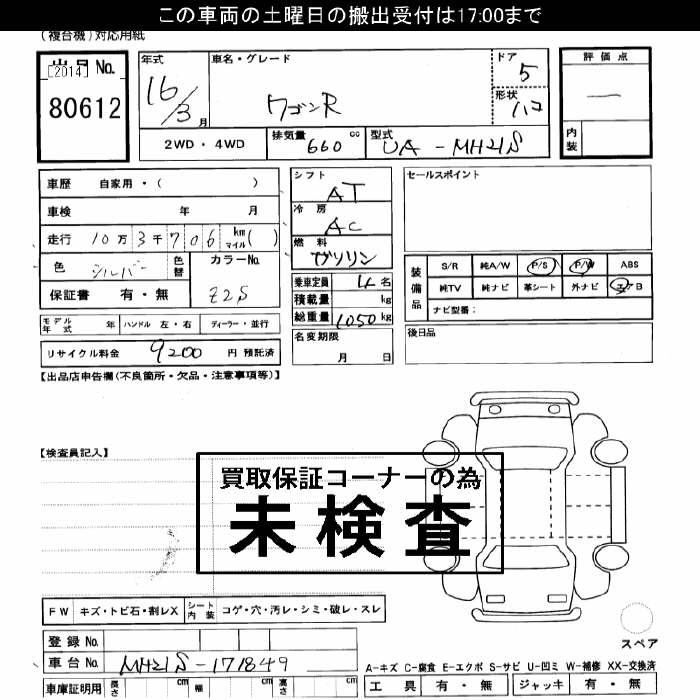 この車両の土曜日の搬出受付は17:00まで
(複合機)対応用紙
[2014] No.
80612
年式 車名・グレード ドア 評価点
16/3月 ワゴンR 5 形状 ハコ —
2WD・4WD 排気量 660 cc 型式 UA-MH21S 内装
車歴 自家用・( )
車検 年 月
走行 10万3千706 km マイル( )
色 シルバー 色替 カラーNo.
保証書 有・無 Z2S
シフト AT
冷房 AC
燃料 ガソリン
乗車定員 4名
積載量 kg
総重量 1050kg
名変期限
月 日
セールスポイント
装備品 S/R 純A/W P/S P/W ABS
純TV 純ナビ 革シート 外ナビ エアB
ナビ型番:
後日品
モデル年式 年 ハンドル 左・右 ディーラー・並行
リサイクル料金 9200 円 預託済
【出品店申告欄(不良箇所・欠品・注意事項等)】
【検査員記入】
買取保証コーナーの為
未検査
FW キズ・トビ石・割レX シート内装 コゲ・穴・汚レ・シミ・破レ・スレ
スペア
登録No.
車台No. MH21S-171849
車庫証明用 長さ cm 幅 cm 高さ cm
A-キズ C-腐食 E-エクボ S-サビ U-凹ミ W-補修 XX-交換済
工具 有・無 ジャッキ 有・無